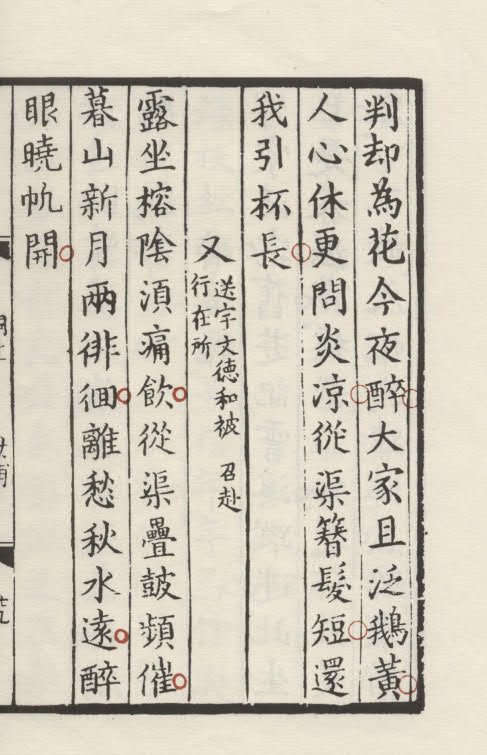 判却為花今夜醉大家且泛鵝黃
人心休更問炎凉從渠簪髮短還
我引杯長
又
送宇文徳和被 召赴
行在所
露坐榕陰湏痛飲從渠疊皷頻催
暮山新月兩徘徊離愁秋水遠醉
眼曉帆開